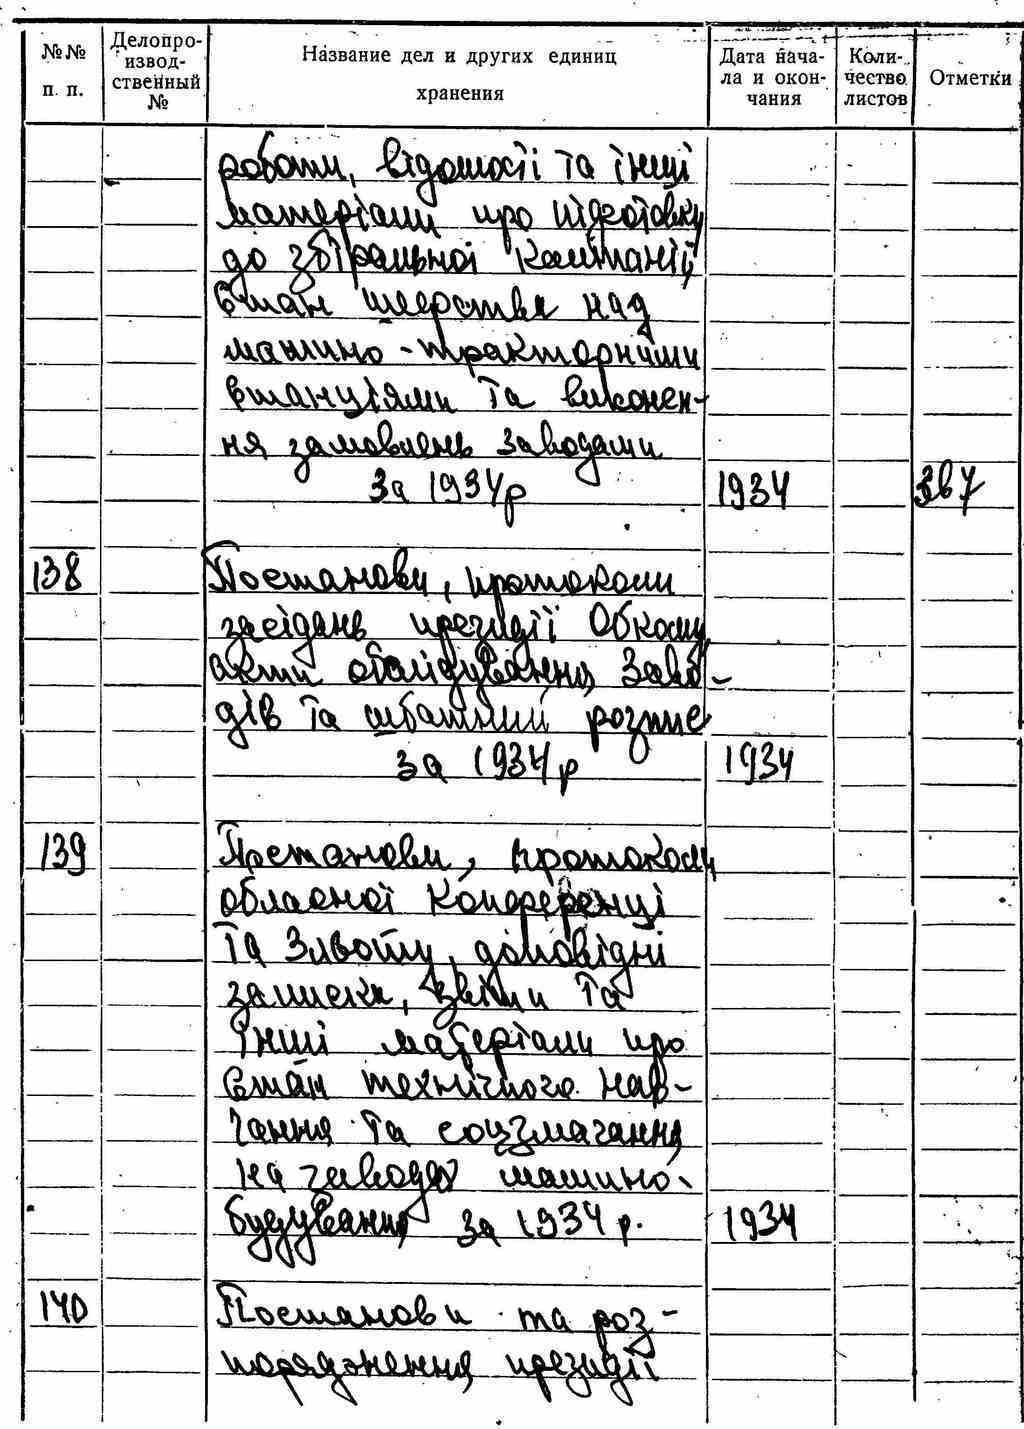 №№ п. п.
Делопроизводственный №
Название дел и других единиц хранения
Дата начала и окончания
Количество листов
Отметки
роботи, відомості та інші
матеріали про підготовку
до збіральної кампанії,
стан шефства над
машино-тракторними
станціями та виконен-
ня замовлень заводами
за 1934 р 1934
138 Постанови, протоколи
засідань президії Обкому,
акти обслідування заво-
дів та штатний розпис
за 1934 р 1934
139 Постанови, протоколи
обласної конференці
та зльоту, доповідні
записки, звіти та
інші матеріали про
стан технічного нав-
чання та соцзмагання
на заводах машино-
будування за 1934 р. 1934
140 Постанови та роз-
порядження президії